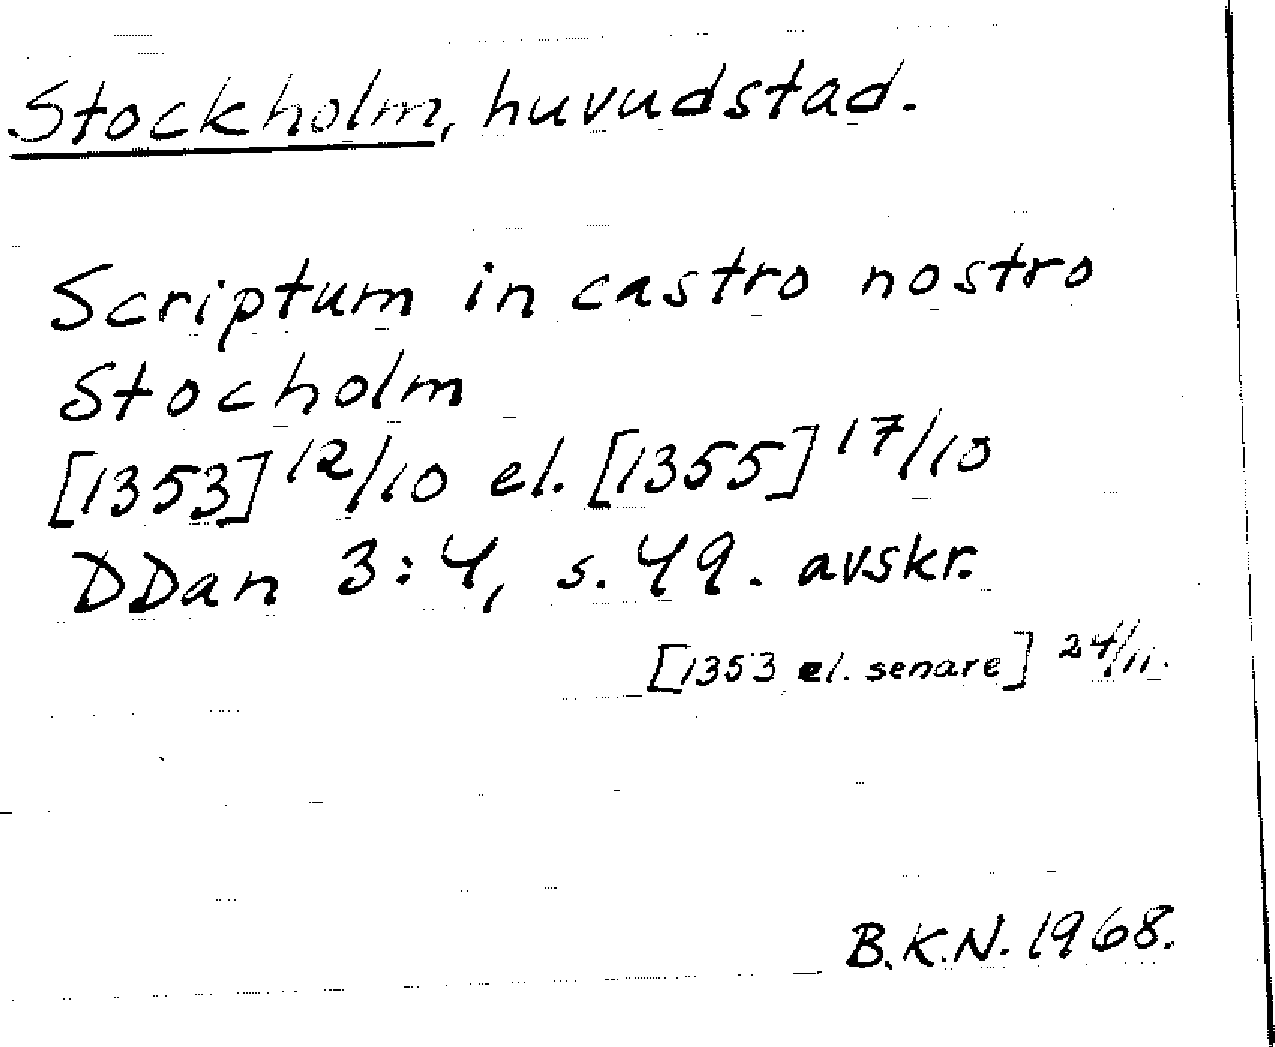 Stockholm, huvudstad.
Scriptum in castro nostro
Stocholm
[1353] 12/10 el. [1355] 17/10
DDan 3:4, s. 49. avskr.
[1353 el. senare] 24/11.
B.K.N. 1968.